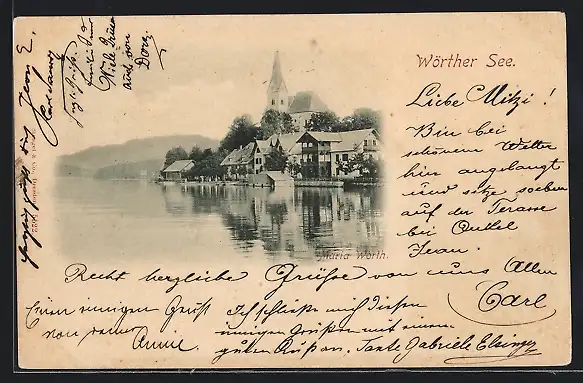 Wörther See.
Liebe Mitzi!
Bin bei
schönem Wetter
hier angelangt
und sitze soeben
auf der Terasse
bei Onkel
Jean.
Maria Wörth.
Recht herzliche Grüße von uns Allen
Carl
Einen innigen Gruß
von
Annie.
Ich schließe mich diesen
innigen Grüßen mit einem
guten Kuß an. Tante Gabriele Elsinger
Viele Grüße
auch von
Dora.
Jean E.